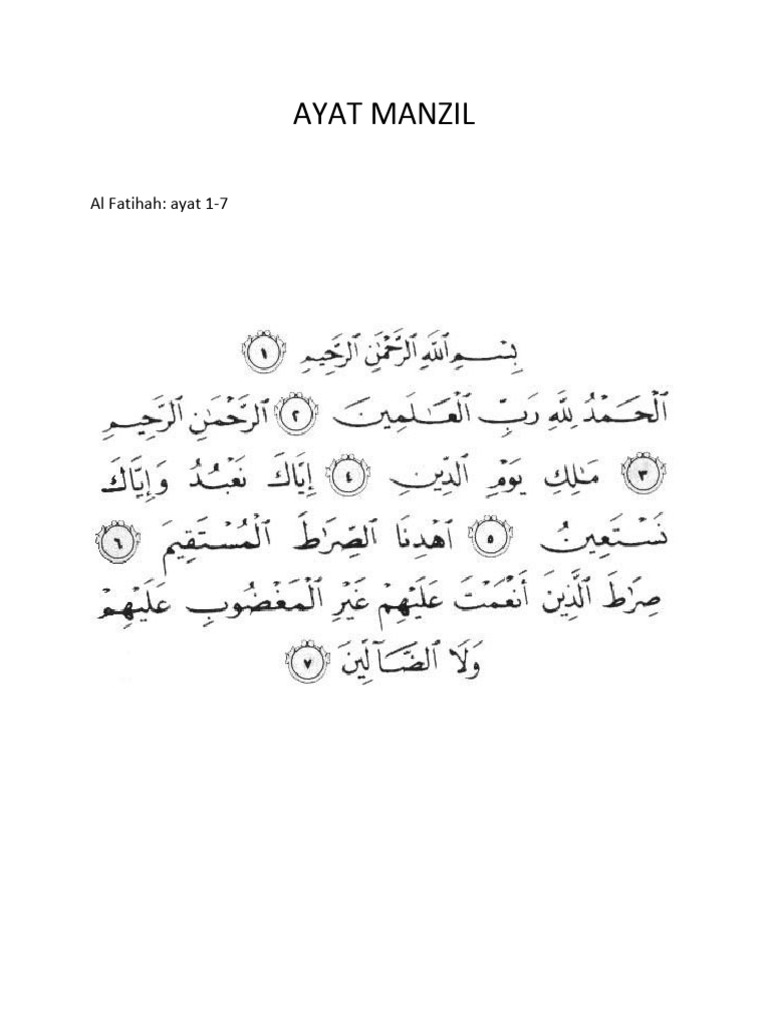 AYAT MANZIL
Al Fatihah: ayat 1-7
بِسْمِ ٱللَّهِ ٱلرَّحْمَٰنِ ٱلرَّحِيمِ ١
ٱلْحَمْدُ لِلَّهِ رَبِّ ٱلْعَٰلَمِينَ ٢ ٱلرَّحْمَٰنِ ٱلرَّحِيمِ
٣ مَٰلِكِ يَوْمِ ٱلدِّينِ ٤ إِيَّاكَ نَعْبُدُ وَإِيَّاكَ
نَسْتَعِينُ ٥ ٱهْدِنَا ٱلصِّرَٰطَ ٱلْمُسْتَقِيمَ ٦
صِرَٰطَ ٱلَّذِينَ أَنْعَمْتَ عَلَيْهِمْ غَيْرِ ٱلْمَغْضُوبِ عَلَيْهِمْ
وَلَا ٱلضَّآلِّينَ ٧